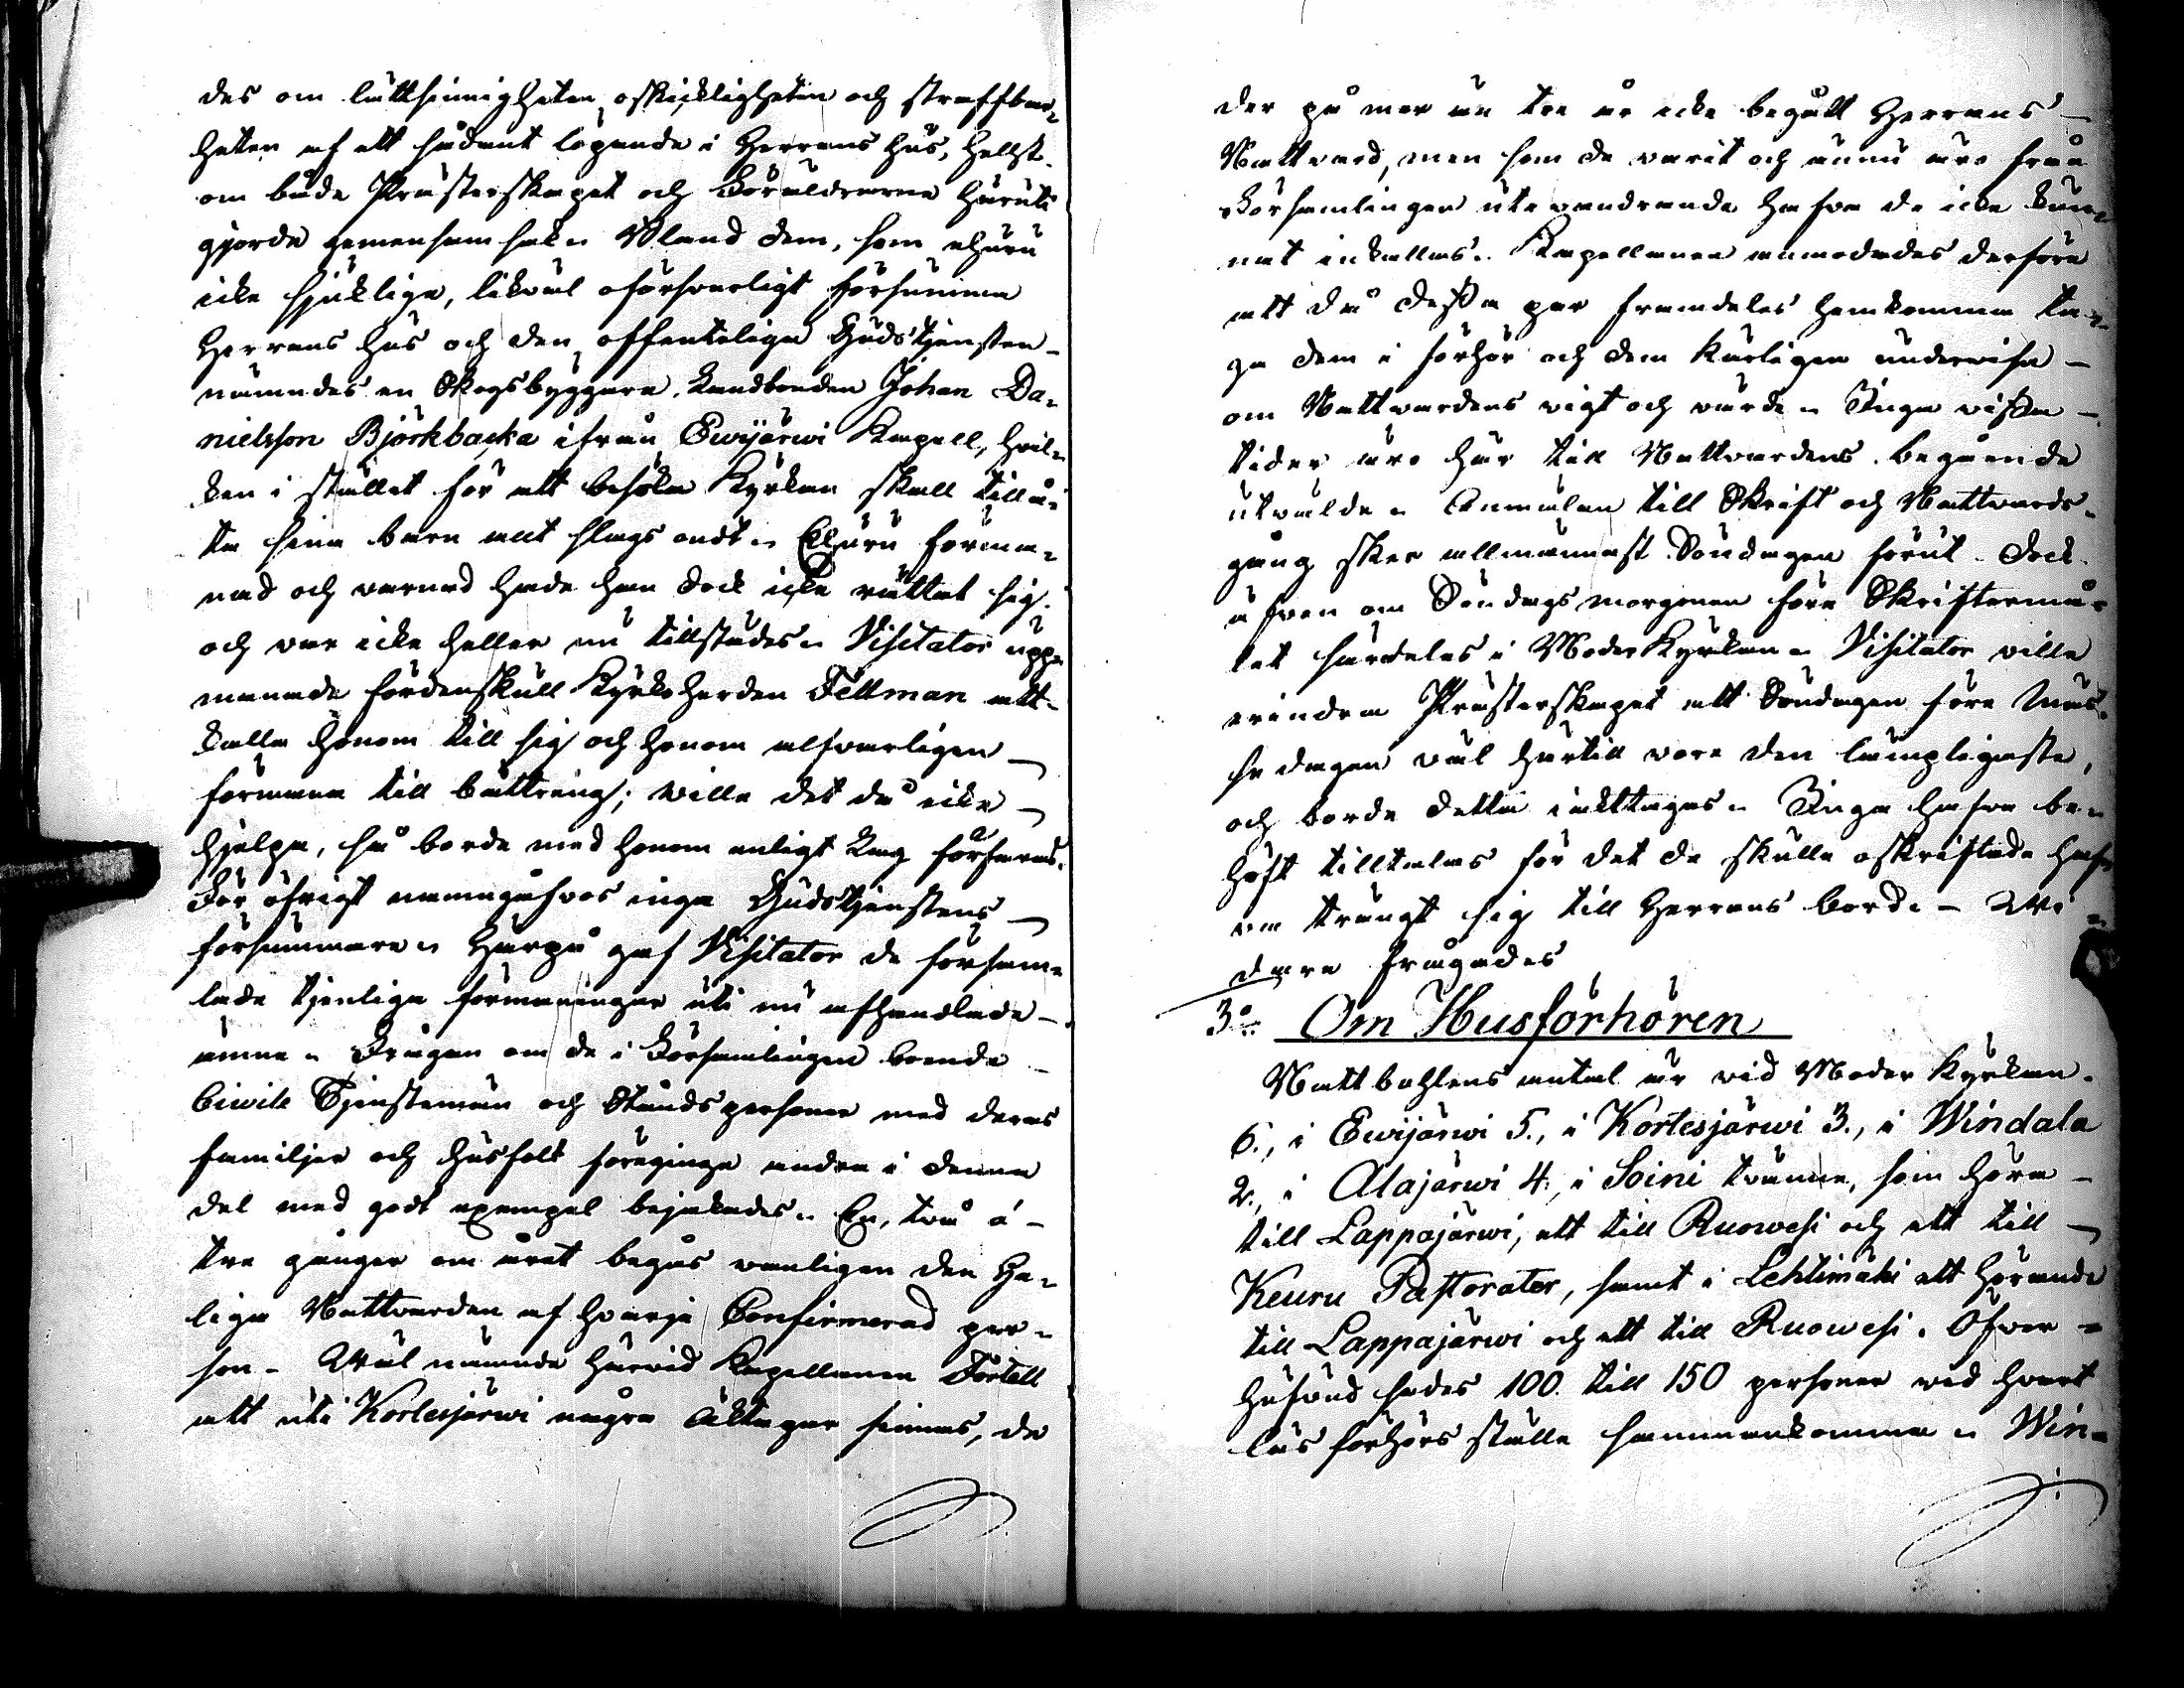 des om lättsinnigheten, oskickligheten och straffbar¬
heten af ett sådant löpande i Herrans hus, hellst
om både Prästerskapet och Föräldrarne häruti
gjorde gemensam sak. Bland dem, som ehuru
icke sjuklige, likväl oförsvarligt försumma
Herrans hus och den offentelige Gudstjensten
nämndes en Skogsbyggare. Landbonden Johan Da¬
nielsson Björkbacka ifrån Ewijärwi Kapell, hvil¬
ken i stället för att besöka Kyrkan skall tillå¬
ta sina barn allt slags ondt. Ehuru förma¬
nad och varnad hade han dock icke rättat sig
och var icke heller nu tillstädes. Visitator upp¬
manade fördenskull Kyrkoherden Fellman att
kalla honom till sig och honom alfvarligen
förmana till bättring; wille det då icke
hjelpa, så borde med honom enligt Lag förfaras.
För öfrigt namngåfvos inga Gudstjenstens
försummare. Härpå gaf Visitator de försam¬
lade tjenliga förmaningar uti nu afhandlade
ämne. Frågan om de i Församlingen boende
Civile Tjenstemän och Ståndspersoner med deras
familjer och husfolk föregingo andra i denna
del med godt exempel bejakades. En, två á
tre gånger om året begås wanligen den He¬
liga Nattvarden af hvarje Confirmerad per¬
son. Wäl nämnde härvid Kapellanen Forsell
att uti Kortesjärwi några Äktapar finnas, de
der på mer än tre år icke begått Herrans
Nattvard, men som de varit och ännu äro från
Församlingen utevandrande hafva de icke kun¬
nat inkallas. Kapellanen anmodades derföre
att då dessa par framdeles hemkomma ta¬
ga dem i förhör och dem kärligen undervisa
om Nattvardens vigt och värde. Inga vissa
tider äro här till Nattvardens begående
utvalde. Anmälan till Skrift och Nattvards¬
gång sker allmännast Söndagen förut dock
äfven om Söndagsmorgonen före Skriftermå¬
let särdeles i Moder Kyrkan. Visitator ville
erindra Prästerskapet att Söndagen före Mäs¬
se dagen väl härtill vore den lämpligaste,
och borde detta iakttagas. Inga hafva be¬
höft tilltalas för det de skulle oskriftade haf¬
va trängt sig till Herrans bord. - Wi¬
dare frågades
3o. Om Husförhören
Nattbohlens antal är vid Moder Kyrkan
6., i Ewijärwi 5., i Kortesjärwi 3., i Windala
2., i Alajärwi 4., i Soini tvänne, som höra
till Lappajärwi, ett till Ruowesi och ett till
Keuru Pastorater, samt i Lehtimäki ett hörande
till Lappajärwi och ett till Ruowesi. Öfver
hufvud sades 100. till 150 personer wid hvart
läsförhörs ställe sammankomma. Win¬